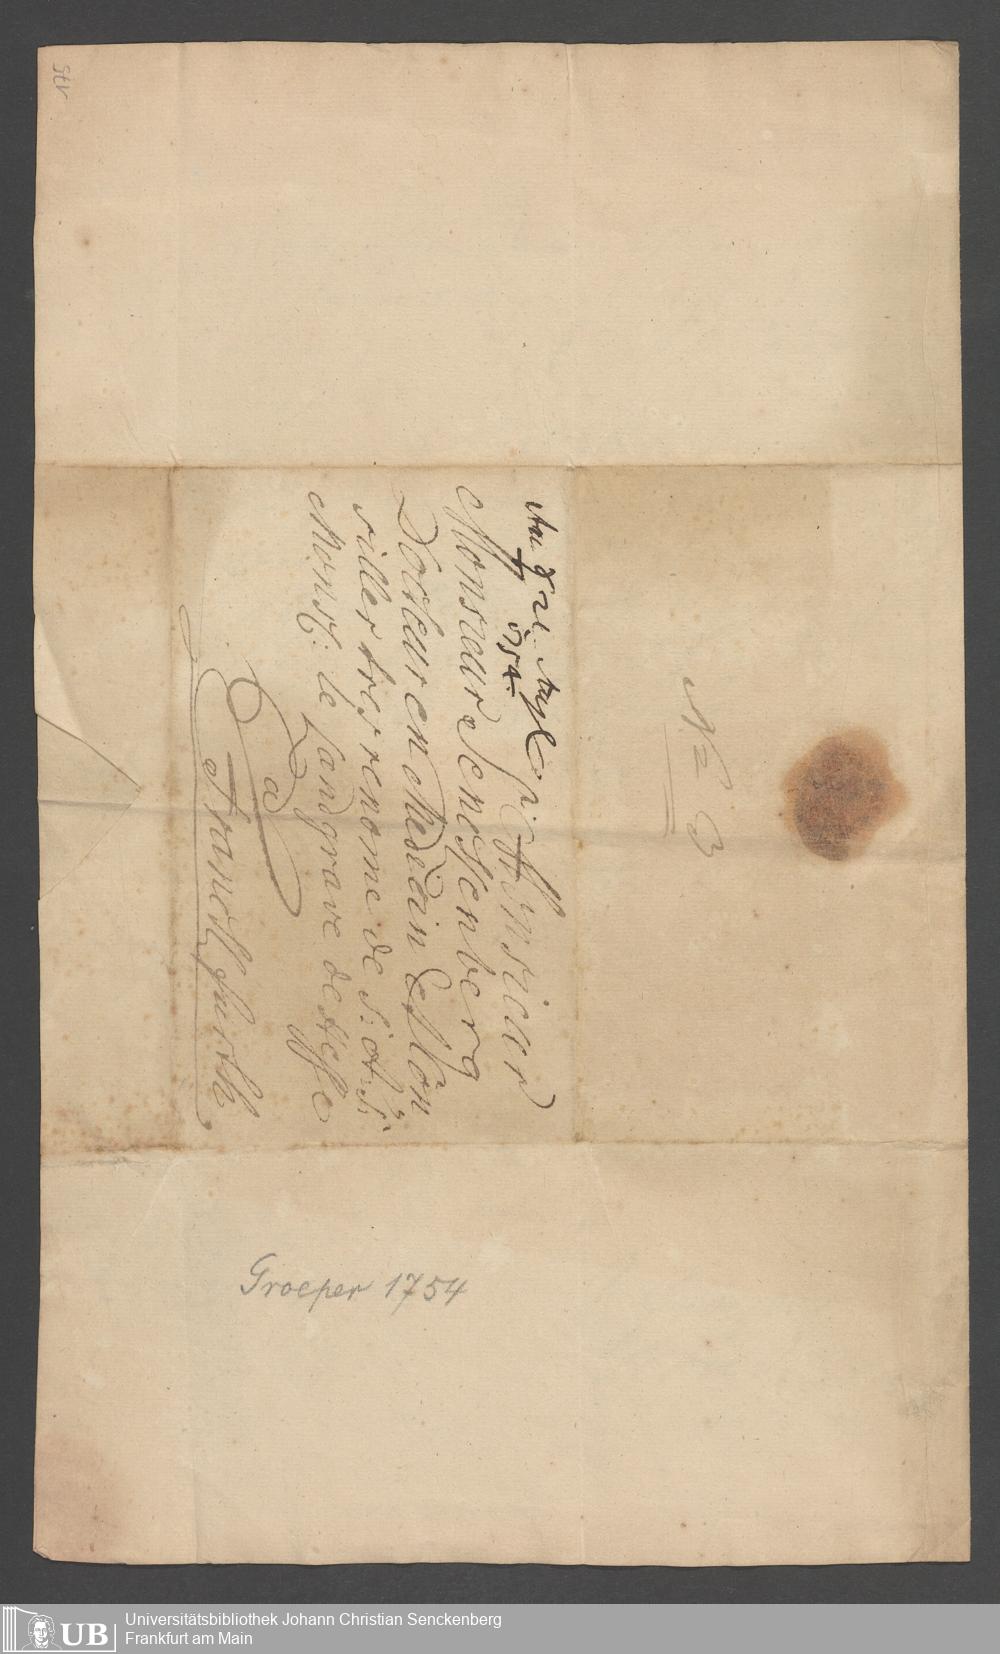 A Monsieur
Monsieur Senckenberg
Docteur en Medecin & Con
siller tres renomé de S: A: S:
Monsg: le Landgrave de Hesse
a
Franckfurth
1754.
No 3
Groeper 1754
175
Universitätsbibliothek Johann Christian Senckenberg
Frankfurt am Main
UB